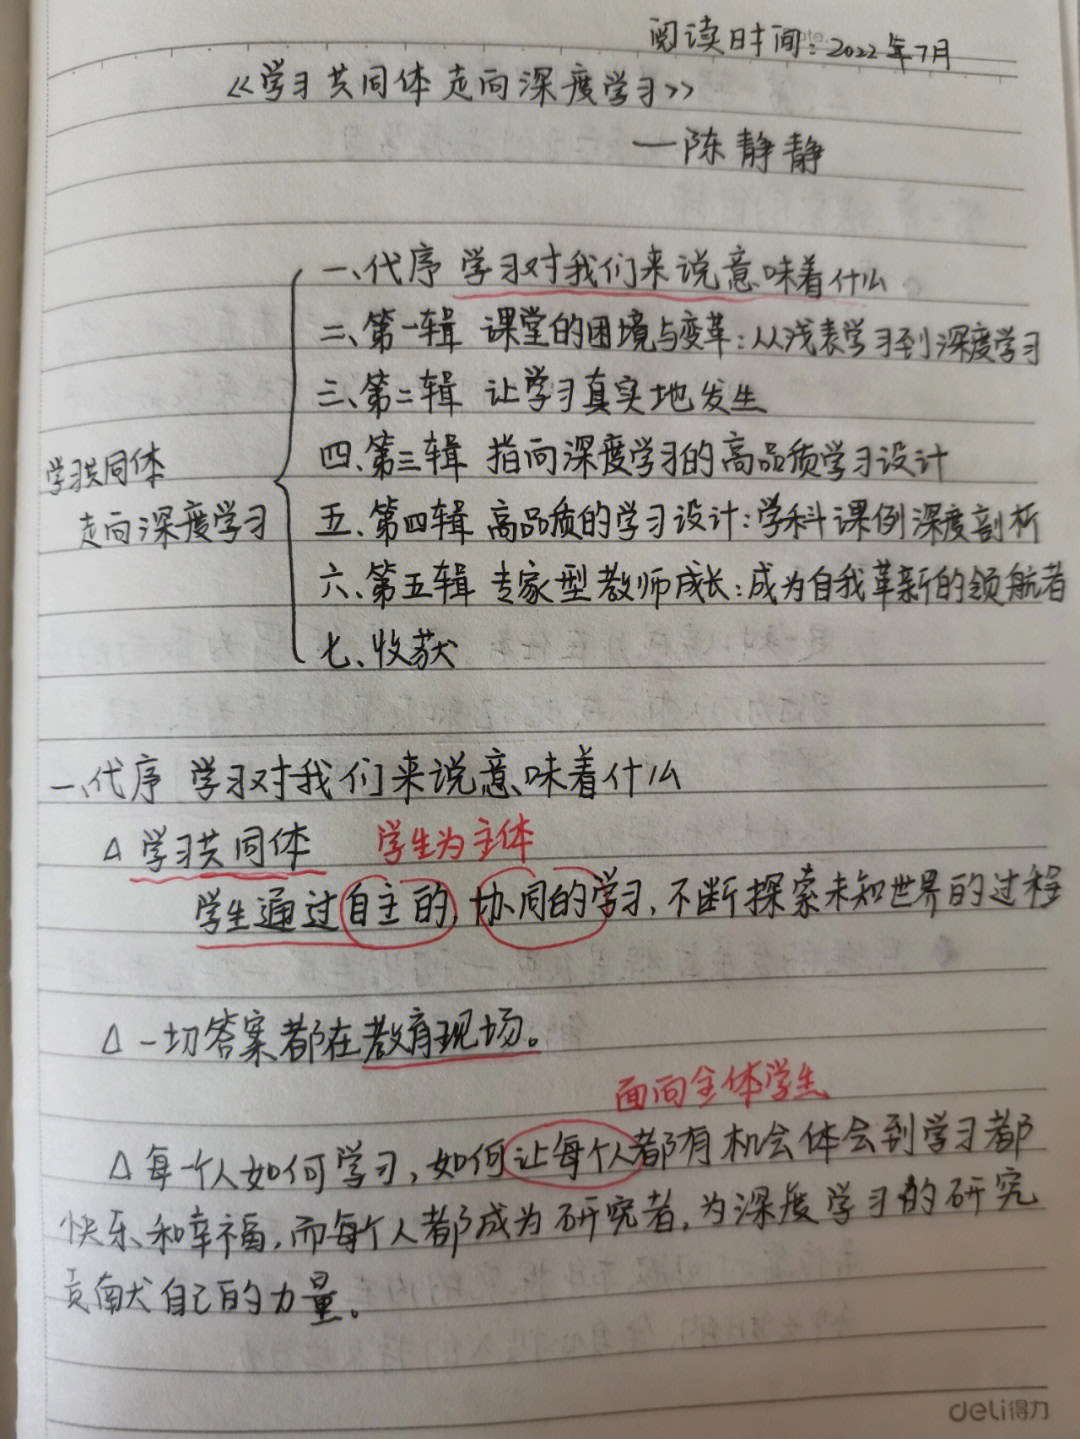 阅读时间:2022年7月
《学习共同体 走向深度学习》
—陈静静
一、代序 学习对我们来说意味着什么
二、第一辑 课堂的困境与变革:从浅表学习到深度学习
三、第二辑 让学习真实地发生
四、第三辑 指向深度学习的高品质学习设计
学习共同体
走向深度学习
五、第四辑 高品质的学习设计:学科课例深度剖析
六、第五辑 专家型教师成长:成为自我革新的领航者
七、收获
一、代序 学习对我们来说意味着什么
△ 学习共同体 学生为主体
学生通过自主的,协同的学习,不断探索未知世界的过程
△ 一切答案都在教育现场。
面向全体学生
△ 每一个人如何学习,如何让每个人都有机会体会到学习都
快乐和幸福,而每个人都成为研究者,为深度学习的研究
贡献自己的力量。
deli得力